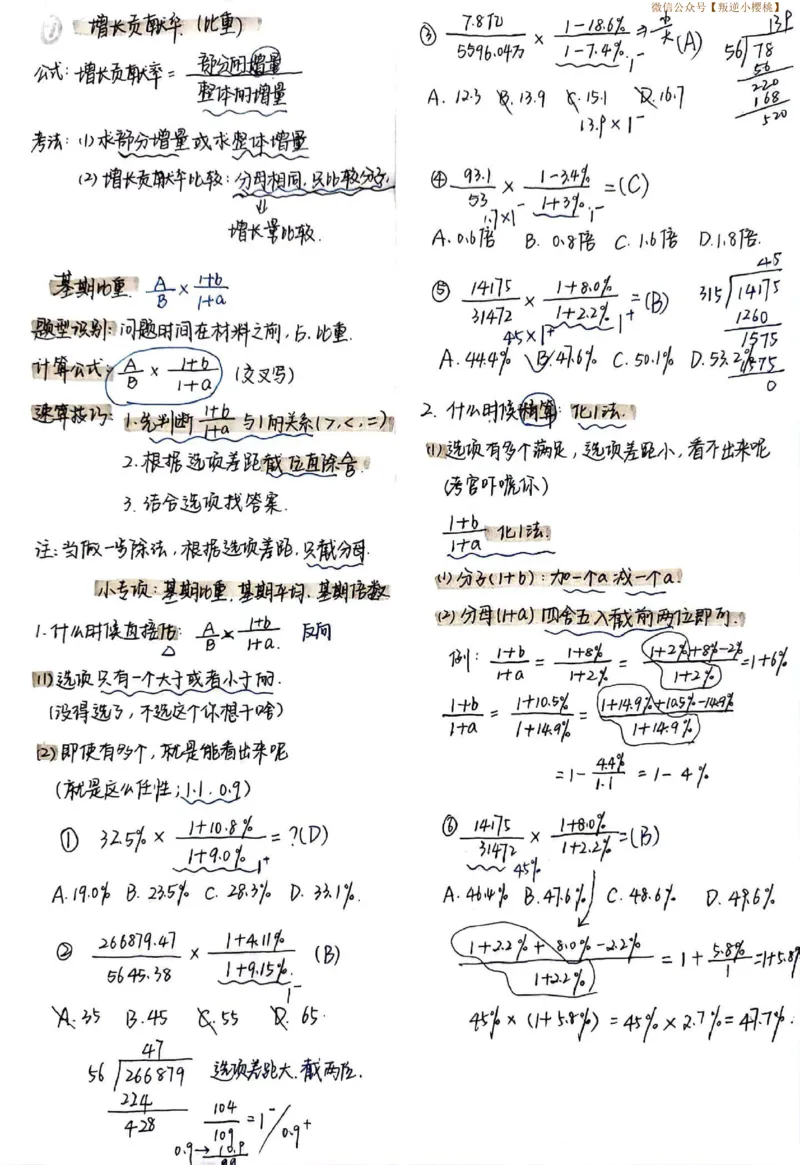 微信公众号【叛逆小樱桃】
① 增长贡献率 (比重)
公式: 增长贡献率 = 部分的增量 / 整体的增量
考法: (1) 求部分增量或求整体增量
(2) 增长贡献率比较: 分母相同, 只比较分子.
⇓
增长量比较.
基期比重. A/B × 1+b/1+a
题型识别: 问题时间在材料之前, 占. 比重.
计算公式: A/B × 1+b/1+a (交叉写)
速算技巧: 1. 先判断 1+b/1+a 与1的关系 (>, <, =)
2. 根据选项差距截位直除 A/B.
3. 结合选项找答案.
注: 当做一步除法, 根据选项差距, 只截分母.
小专项: 基期比重. 基期平均. 基期倍数
1. 什么时候直接估: A/B × 1+b/1+a. 反向
(1) 选项只有一个大于或者小于的.
(没得选了, 不选这个你想干啥)
(2) 即使有多个, 就是能看出来呢
(就是这么任性; 1.1. 0.9)
① 32.5% × 1+10.8%/1+9.0% = ?(D)
1⁺
A. 19.0% B. 23.5% C. 28.3% D. 33.1%.
② 266879.47/5645.38 × 1+4.11%/1+9.15% (B)
1⁻
A. 35 B. 45 C. 55 D. 65.
47
56 266879 选项差距大. 截两位.
224
428
104/109 = 1⁻ / 0.9⁺
0.9 →
③ 7.8亿/5596.04万 × 1-18.6%/1-7.4% ⇒ 小/大 (A)
1⁻
139
56 78
56
220
168
520
A. 12.3 B. 13.9 C. 15.1 D. 16.7
13.9 × 1⁻
④ 93.1/53 × 1-3.4%/1+3% = (C)
1.7 × 1⁻ 1⁻
A. 0.6倍 B. 0.8倍 C. 1.6倍 D. 1.8倍.
⑤ 14175/31472 × 1+8.0%/1+2.2% = (B)
45 × 1⁺ 1⁺
45
315 14175
1260
1575
1575
0
A. 44.4% B. 47.6% C. 50.1% D. 53.2%
2. 什么时候精算: 化1法.
(1) 选项有多个满足, 选项差距小, 看不出来呢
(考官吓唬你)
1+b/1+a 化1法.
(1) 分子(1+b): 加一个a 减一个a.
(2) 分母(1+a) 四舍五入截前两位即可.
例: 1+b/1+a = 1+8%/1+2% = 1+2%+8%-2%/1+2% = 1+6%
1+b/1+a = 1+10.5%/1+14.9% = 1+14.9%+10.5%-14.9%/1+14.9%
= 1- 4.4%/1.1 = 1-4%
⑥ 14175/31472 × 1+8.0%/1+2.2% = (B)
45%
A. 46.4% B. 47.6% C. 48.6% D. 49.6%
1+2.2%+8.0%-2.2%/1+2.2% = 1+ 5.8%/1 = 1+5.8%
45% × (1+5.8%) = 45% × 2.7% = 47.7%.